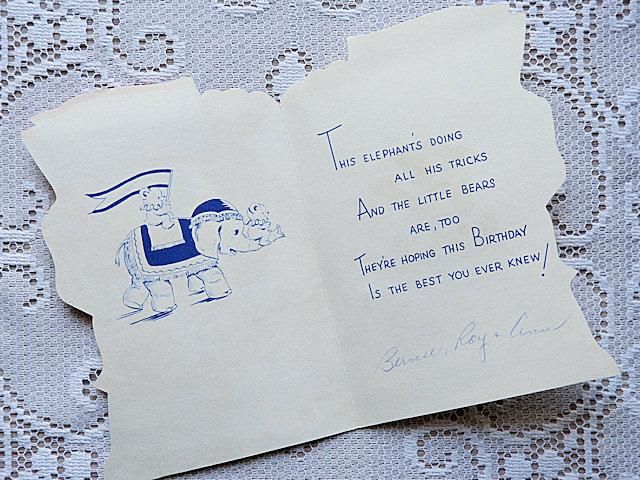 THIS ELEPHANT'S DOING
ALL HIS TRICKS
AND THE LITTLE BEARS
ARE, TOO
THEY'RE HOPING THIS BIRTHDAY
IS THE BEST YOU EVER KNEW!
Bernie, Roy + Anne